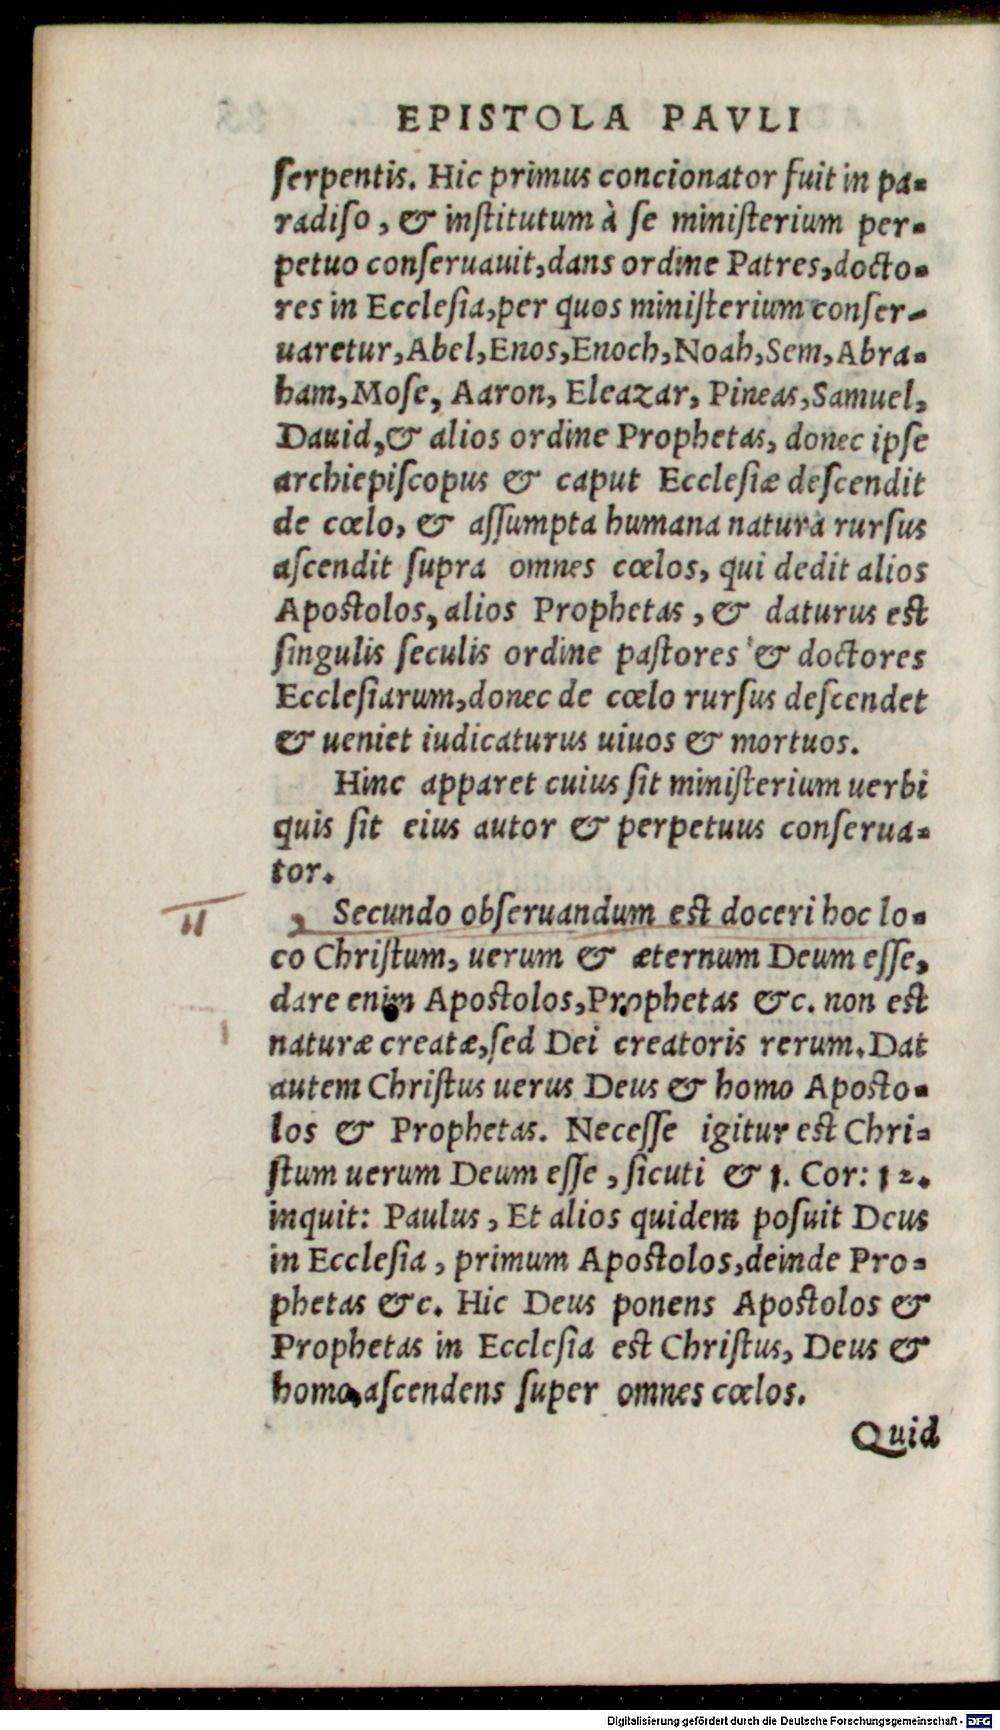 EPISTOLA PAVLI
ſerpentis. Hic primus concionator fuit in pa-
radiſo, & inſtitutum à ſe miniſterium per-
petuo conſeruauit, dans ordine Patres, docto-
res in Eccleſia, per quos miniſterium conſer-
uaretur, Abel, Enos, Enoch, Noah, Sem, Abra-
ham, Moſe, Aaron, Eleazar, Pineas, Samuel,
Dauid, & alios ordine Prophetas, donec ipſe
archiepiſcopus & caput Eccleſiæ deſcendit
de cœlo, & aſſumpta humana natura rurſus
aſcendit ſupra omnes cœlos, qui dedit alios
Apoſtolos, alios Prophetas, & daturus eſt
ſingulis ſeculis ordine paſtores & doctores
Eccleſiarum, donec de cœlo rurſus deſcendet
& ueniet iudicaturus uiuos & mortuos.
Hinc apparet cuius ſit miniſterium uerbi
quis ſit eius autor & perpetuus conſerua-
tor.
II
Secundo obſeruandum eſt doceri hoc lo-
co Chriſtum, uerum & æternum Deum eſſe,
dare enim Apoſtolos, Prophetas &c. non eſt
naturæ creatæ, ſed Dei creatoris rerum. Dat
autem Chriſtus uerus Deus & homo Apoſto-
los & Prophetas. Neceſſe igitur eſt Chri-
ſtum uerum Deum eſſe, ſicuti & 1. Cor: 12.
inquit: Paulus, Et alios quidem poſuit Deus
in Eccleſia, primum Apoſtolos, deinde Pro-
phetas &c. Hic Deus ponens Apoſtolos &
Prophetas in Eccleſia eſt Chriſtus, Deus &
homo, aſcendens ſuper omnes cœlos.
Quid
Digitalisierung gefördert durch die Deutsche Forschungsgemeinschaft - DFG